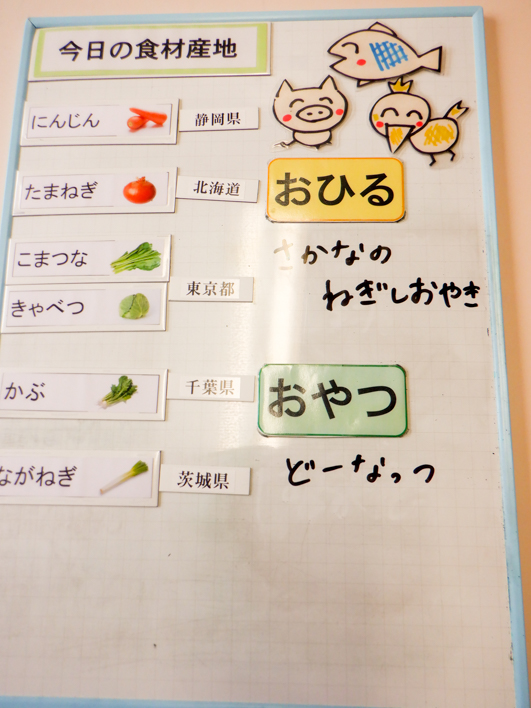 今日の食材産地
にんじん 静岡県
たまねぎ 北海道
こまつな
きゃべつ 東京都
かぶ 千葉県
ながねぎ 茨城県
おひる
さかなの
ねぎしおやき
おやつ
どーなっつ